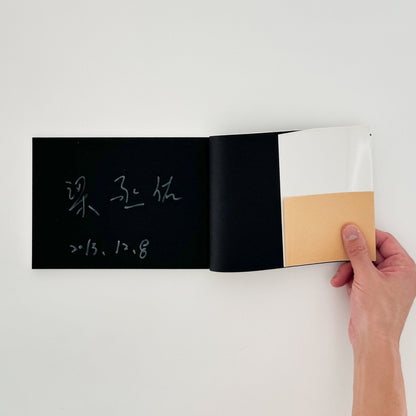 梁丞佑
2013.12.8